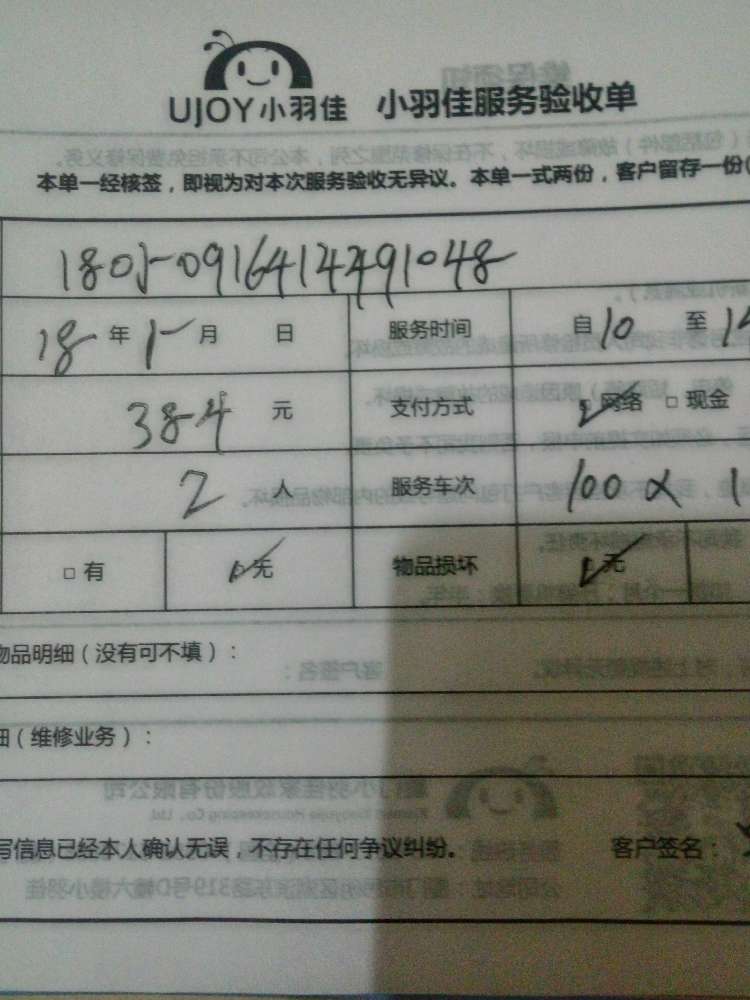 UJOY小羽佳 小羽佳服务验收单
本单一经核签，即视为对本次服务验收无异议。本单一式两份，客户留存一份(
1805-0916414491048
18年 5月 日 服务时间 自10 至14
384 元 支付方式 网络 □ 现金
2 人 服务车次 100 X 1
□ 有 无 物品损坏 无
物品明细（没有可不填）：
细（维修业务）：
写信息已经本人确认无误，不存在任何争议纠纷。 客户签名：